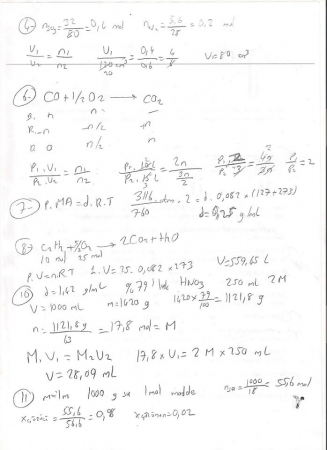 4- nBr₂ = 32/80 = 0,4 mol nN₂ = 5,6/28 = 0,2 mol
V₁/V₂ = n₁/n₂ V₁/120 cm³ = 0,4/0,6 = 4/6 V₁ = 80 cm³
6- CO + 1/2 O₂ → CO₂
B. n n -
R. -n n/2 +n
0 n/2 n
P₁.V₁/P₂.V₂ = n₁/n₂ = 2n P₁/P₂ = 2
7- P.MA = d.R.T 3116/760 atm. 2 = d. 0,082 × (127+273)
d = 0,25 g/mol
8- → 2CO₂ + H₂O
10 mol 25 mol
P.V = nRT 1.V = 25. 0,082 × 273 V = 559,65 L
10 d = 1,42 g/mL % 79'luk HNO₃ 250 mL 2M
V = 1000 mL m = 1420 g 1420 × 79/100 = 1121,8 g
n = 1121,8 g/63 = 17,8 mol = M
M₁V₁ = M₂V₂ 17,8 × V₁ = 2 M × 250 mL
V = 28,09 mL
11 1000 g su 1 mol madde 1000/18 = 55,6 mol
= 55,6/56,6 = 0,98 = 0,02